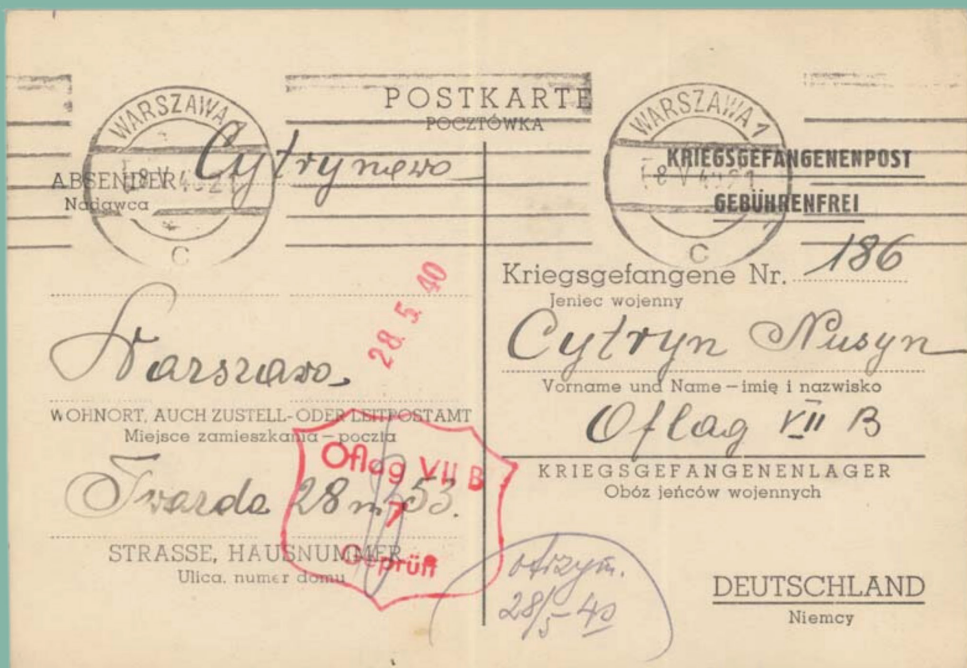 POSTKARTE
POCZTÓWKA
WARSZAWA 1
C
ABSENDER Cytrynowa
Nadawca
Warszawa
WOHNORT, AUCH ZUSTELL- ODER LEITPOSTAMT
Miejsce zamieszkania – poczta
Twarda 28 m 53.
STRASSE, HAUSNUMMER
Ulica, numer domu
28. 5. 40
Oflag VII B
7
Geprüft
WARSZAWA 1
C
KRIEGSGEFANGENENPOST
GEBÜHRENFREI
Kriegsgefangene Nr. 186
Jeniec wojenny
Cytryn Nusyn
Vorname und Name – imię i nazwisko
Oflag VII B
KRIEGSGEFANGENENLAGER
Obóz jeńców wojennych
otrzym.
28/5 – 40
DEUTSCHLAND
Niemcy